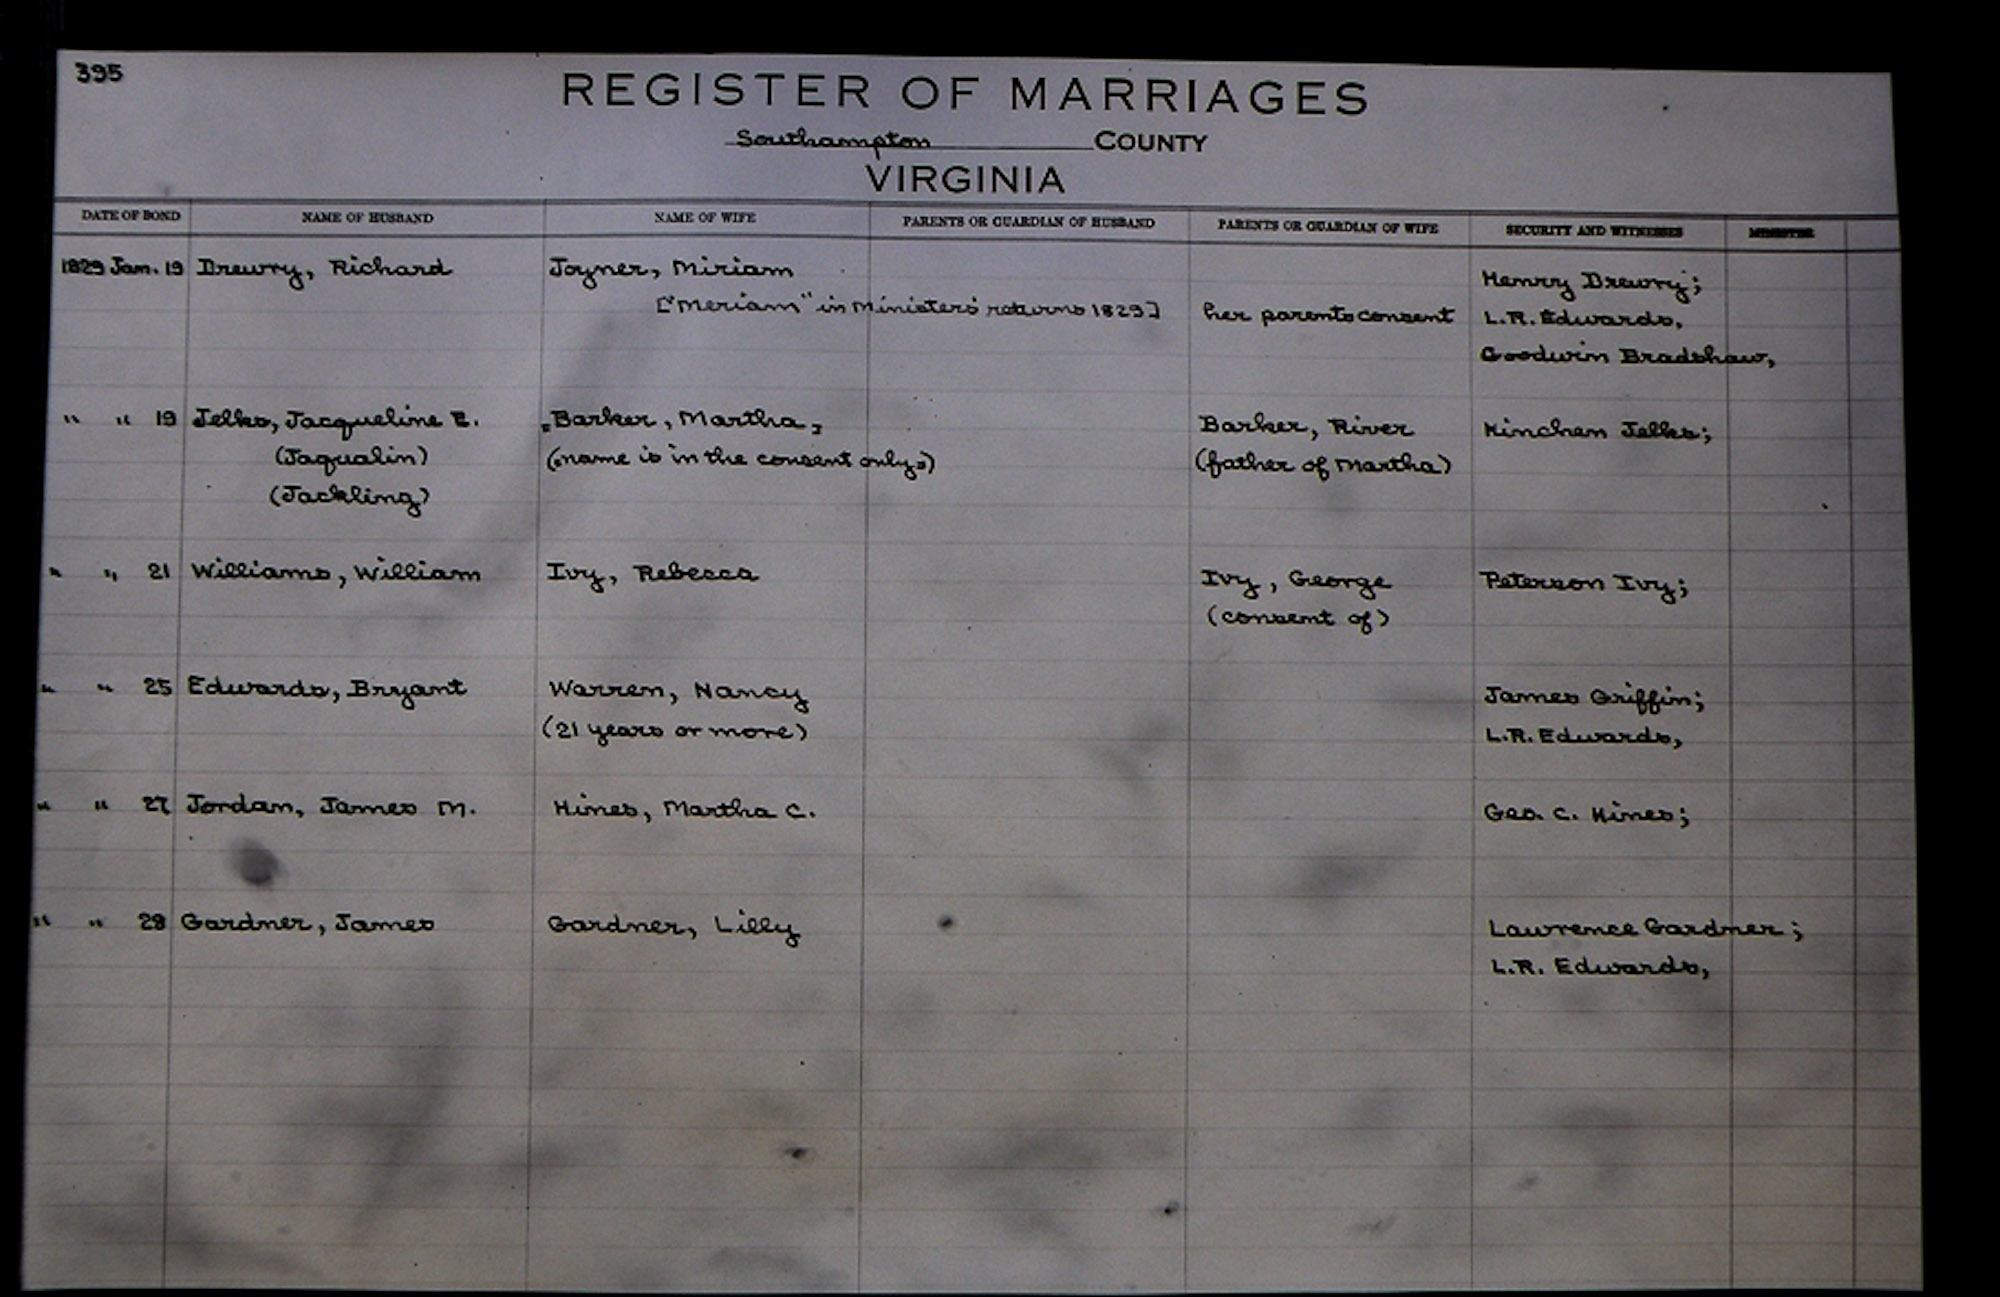 395
REGISTER OF MARRIAGES
Southampton COUNTY
VIRGINIA
DATE OF BOND NAME OF HUSBAND NAME OF WIFE PARENTS OR GUARDIAN OF HUSBAND PARENTS OR GUARDIAN OF WIFE SECURITY AND WITNESSES MINISTER
1829 Jan. 19 Drewry, Richard Joyner, Miriam Henry Drewry;
["Meriam" in Ministers' returns 1829] her parents consent L.R. Edwards,
Goodwin Bradshaw,
" " 19 Jelks, Jacqueline E. [Barker, Martha] Barker, River Kinchen Jelks;
(Jaqualin) (name is in the consent only) (father of Martha)
(Jackling)
" " 21 Williams, William Ivy, Rebecca Ivy, George Peterson Ivy;
(consent of)
" " 25 Edwards, Bryant Warren, Nancy James Griffin;
(21 years or more) L.R. Edwards,
" " 27 Jordan, James M. Hines, Martha C. Geo. C. Hines;
" " 28 Gardner, James Gardner, Lilly Lawrence Gardner;
L.R. Edwards,